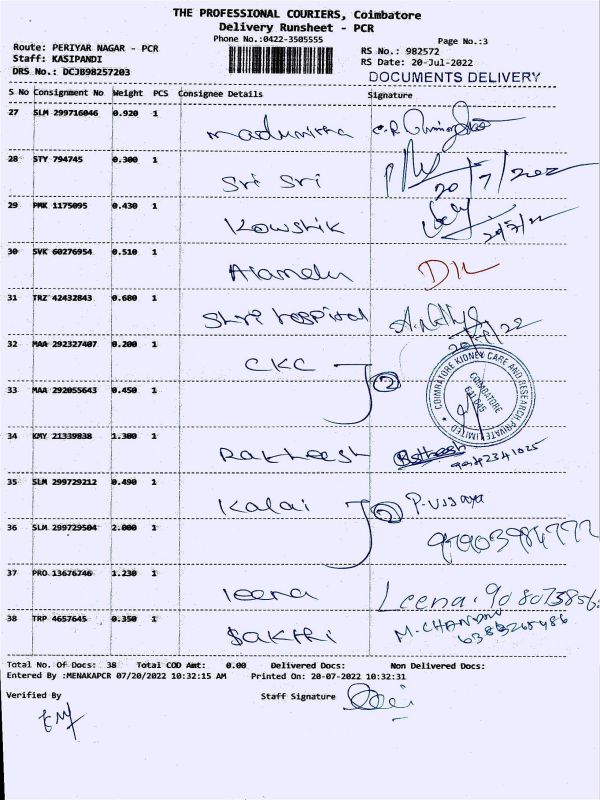 THE PROFESSIONAL COURIERS, Coimbatore
Delivery Runsheet - PCR
Phone No.:0422-3505555
Page No.:3
Route: PERIYAR NAGAR - PCR
RS No.: 982572
Staff: KASIPANDI
RS Date: 20-Jul-2022
DRS No.: DCJB98257203
DOCUMENTS DELIVERY
S No Consignment No Weight PCS Consignee Details Signature
27 SLM 299716046 0.920 1
28 STY 794745 0.300 1 Sri Sri 20/7/2022
29 PMK 1175095 0.430 1 Kowshik 20/7/22
30 SVK 60276954 0.510 1 Alamelu
31 TRZ 42432843 0.680 1 Shri hospital
32 MAA 292327407 0.200 1 CKC 2
COIMBATORE KIDNEY CARE AND RESEARCH PRIVATE LIMITED
COIMBATORE
641 045
33 MAA 292055643 0.450 1
34 KMY 21339838 1.300 1 Rakheesh
35 SLM 299729212 0.490 1 Kalai 2
36 SLM 299729504 2.000 1
37 PRO 13676746 1.230 1 leena Leena.
38 TRP 4657645 0.350 1 Sakthi
Total No. Of Docs: 38 Total COD Amt: 0.00 Delivered Docs: Non Delivered Docs:
Entered By :MENAKAPCR 07/20/2022 10:32:15 AM Printed On: 20-07-2022 10:32:31
Verified By Staff Signature